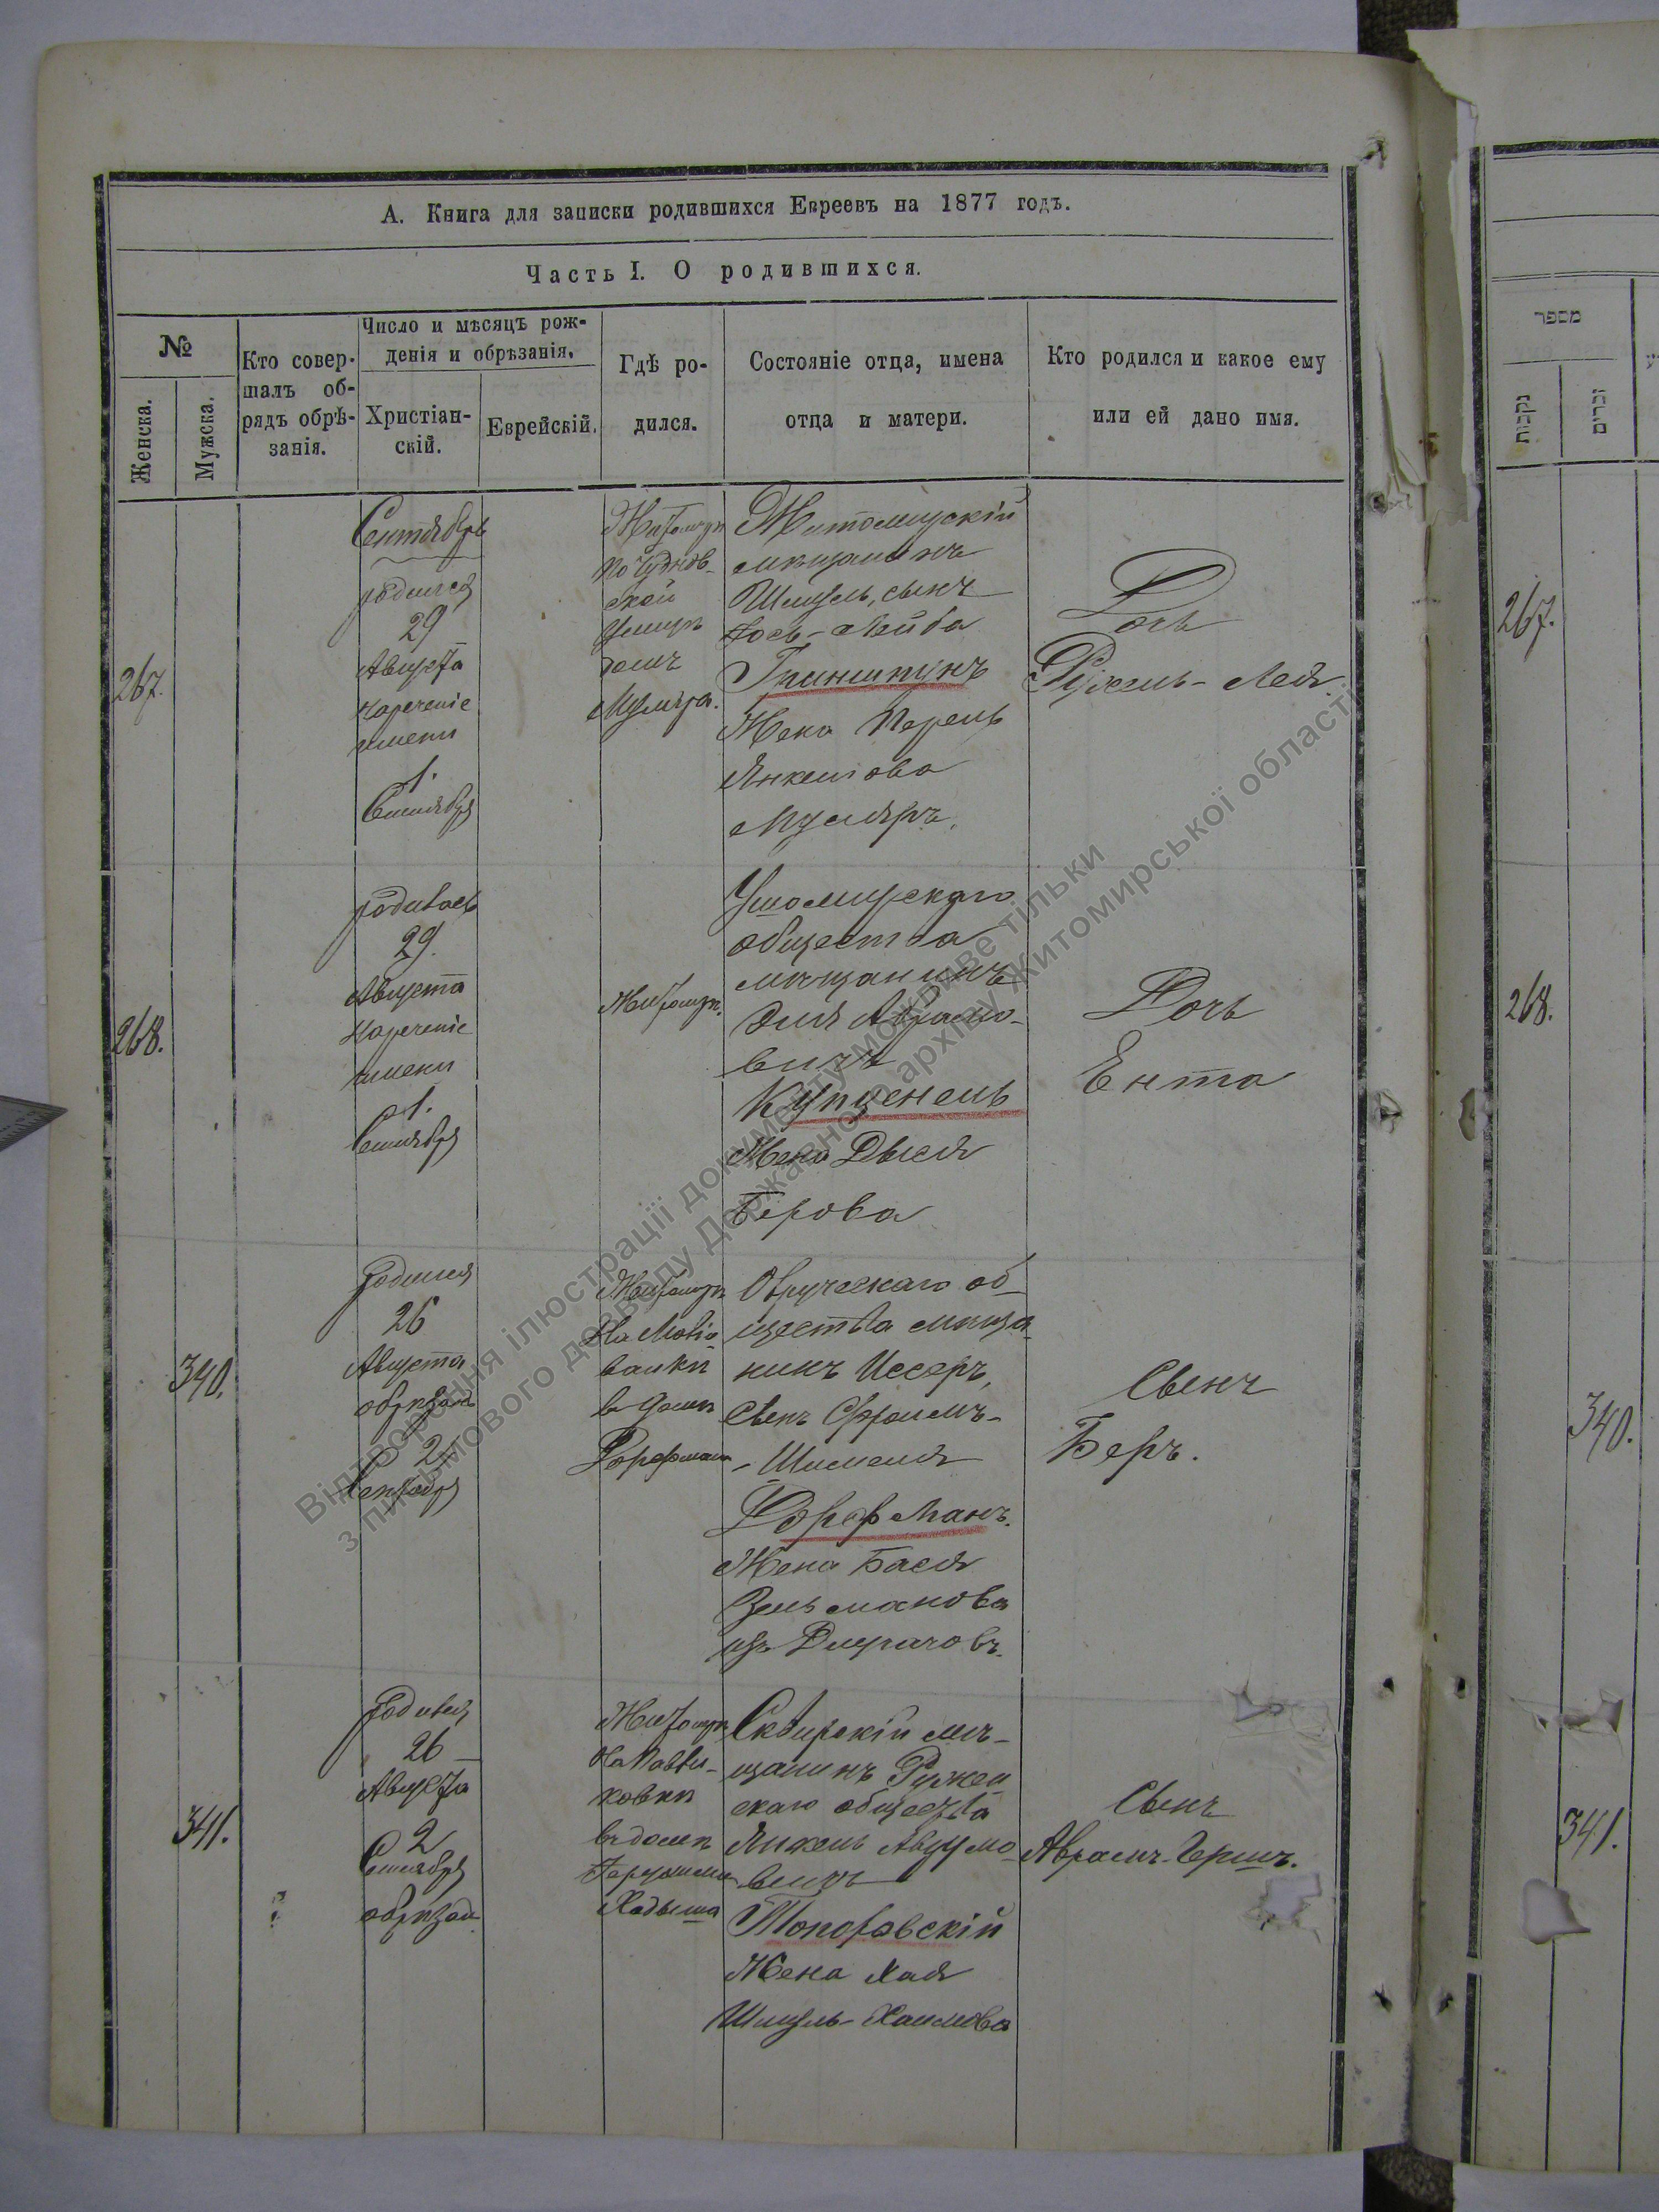 А. Книга для записки родившихся Евреевъ на 1877 годъ.
Часть I. О родившихся.
№
Женска.
Мужска.
Кто совер-
шалъ об-
рядъ обрѣ-
занія.
Число и мѣсяцъ рож-
денія и обрѣзанія.
Христіан-
скій.
Еврейскій.
Гдѣ ро-
дился.
Состояніе отца, имена
отца и матери.
Кто родился и какое ему
или ей дано имя.
267.
Сентябрь
родился
29
Августа
нареченіе
имени
1.
Сентября
Житомиръ
по Чуднов-
ской
улицѣ
домъ
Муляра.
Житомирскій
мѣщанинъ
Шмуль, сынъ
Іось-Лейба
Гриншпунъ
Жена Перель
Янкелова
Муляръ.
Дочь
Рухель-Лея.
268.
родилась
29.
Августа
Нареченіе
имени
1.
Сентября
Житомиръ.
Ушомирскаго
общества
мѣщанинъ
Эля Абрамо-
вичъ
Купценель
Жена Двося
Берова
Дочь
Ента
340.
родился
26
Августа
обрѣзанъ
2
Сентября
Житомиръ
ва домѣ
Дорфмана
Овручскаго об-
щества мѣща-
нинъ Иссеръ,
сынъ Фроимъ-
-Шмеля
Дорфманъ.
Жена Бася
Зельманова
изъ
Сынъ
Беръ.
341.
родился
26
Августа
2
Сентября
обрѣзан
Житомиръ
На Павли-
ковкѣ
въ домѣ
Сквирскій мѣ-
щанинъ Ружин
скаго общества
Янкель
вичъ
Топоровскій
Жена Хая
Шмуль-Хаимова
Сынъ
Абрамъ-Гершъ.
מספר
נקבות
זכרים
267.
268.
340.
341.
Відтворення ілюстрації документу можливе тільки
з письмового дозволу Державного архіву Житомирської області